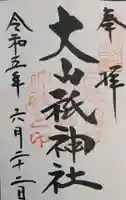 奉拝
大山祇神社
令和五年六月二十二日